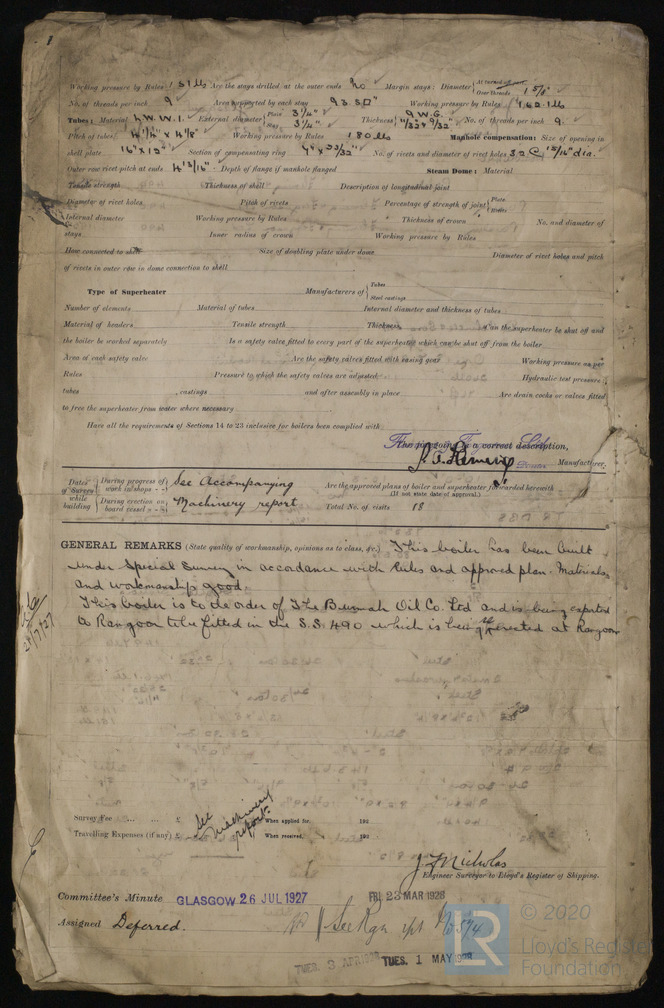 Working pressure by Rules 151 lbs Are the stays drilled at the outer ends No Margin stays: Diameter { At turned off part, or Over threads 1 5/8"
No. of threads per inch 9 Area supported by each stay Working pressure by Rules
Tubes: Material External diameter { Plain 3 1/4" Stay 3 1/4" Thickness { 9 W.G. No. of threads per inch 9
Pitch of tubes 4 1/2" x 4 3/8" Working pressure by Rules 180 lbs Manhole compensation: Size of opening in
shell plate 16" x 12" Section of compensating ring No. of rivets and diameter of rivet holes 32 @ 15/16" dia.
Outer row rivet pitch at ends 4 13/16" Depth of flange if manhole flanged Steam Dome: Material
Tensile strength Thickness of shell Description of longitudinal joint
Diameter of rivet holes Pitch of rivets Percentage of strength of joint { Plate Rivets
Internal diameter Working pressure by Rules Thickness of crown No. and diameter of
stays Inner radius of crown Working pressure by Rules
How connected to shell Size of doubling plate under dome Diameter of rivet holes and pitch
of rivets in outer row in dome connection to shell
Type of Superheater Manufacturers of { Tubes Steel castings
Number of elements Material of tubes Internal diameter and thickness of tubes
Material of headers Tensile strength Thickness Can the superheater be shut off and
the boiler be worked separately Is a safety valve fitted to every part of the superheater which can be shut off from the boiler
Area of each safety valve Are the safety valves fitted with easing gear Working pressure as per
Rules Pressure to which the safety valves are adjusted Hydraulic test pressure:
tubes , castings and after assembly in place Are drain cocks or valves fitted
to free the superheater from water where necessary
Have all the requirements of Sections 14 to 23 inclusive for boilers been complied with
The foregoing is a correct description,
Manufacturer.
Dates of Survey while building { During progress of work in shops - - See Accompanying Are the approved plans of boiler and superheater forwarded herewith
(If not state date of approval.)
During erection on board vessel - - - Machinery report Total No. of visits 18
GENERAL REMARKS (State quality of workmanship, opinions as to class, &c.) This boiler has been built
under Special Survey in accordance with Rules and approved plan. Materials
and workmanship good.
This boiler is to the order of The Burmah Oil Co. Ltd and is being exported
to Rangoon to be fitted in the S.S. 490 which is being re-erected at Rangoon
28/7/27
Survey Fee ... ... £ See Machinery report. When applied for, 192
Travelling Expenses (if any) £ When received, 192
J. Nicholas
Engineer Surveyor to Lloyd's Register of Shipping.
Committee's Minute GLASGOW 26 JUL 1927 FRI. 23 MAR 1928
Assigned Deferred. See Rgn rpt
TUES. 1 MAY 1928
© 2020
LR Lloyd's Register
Foundation